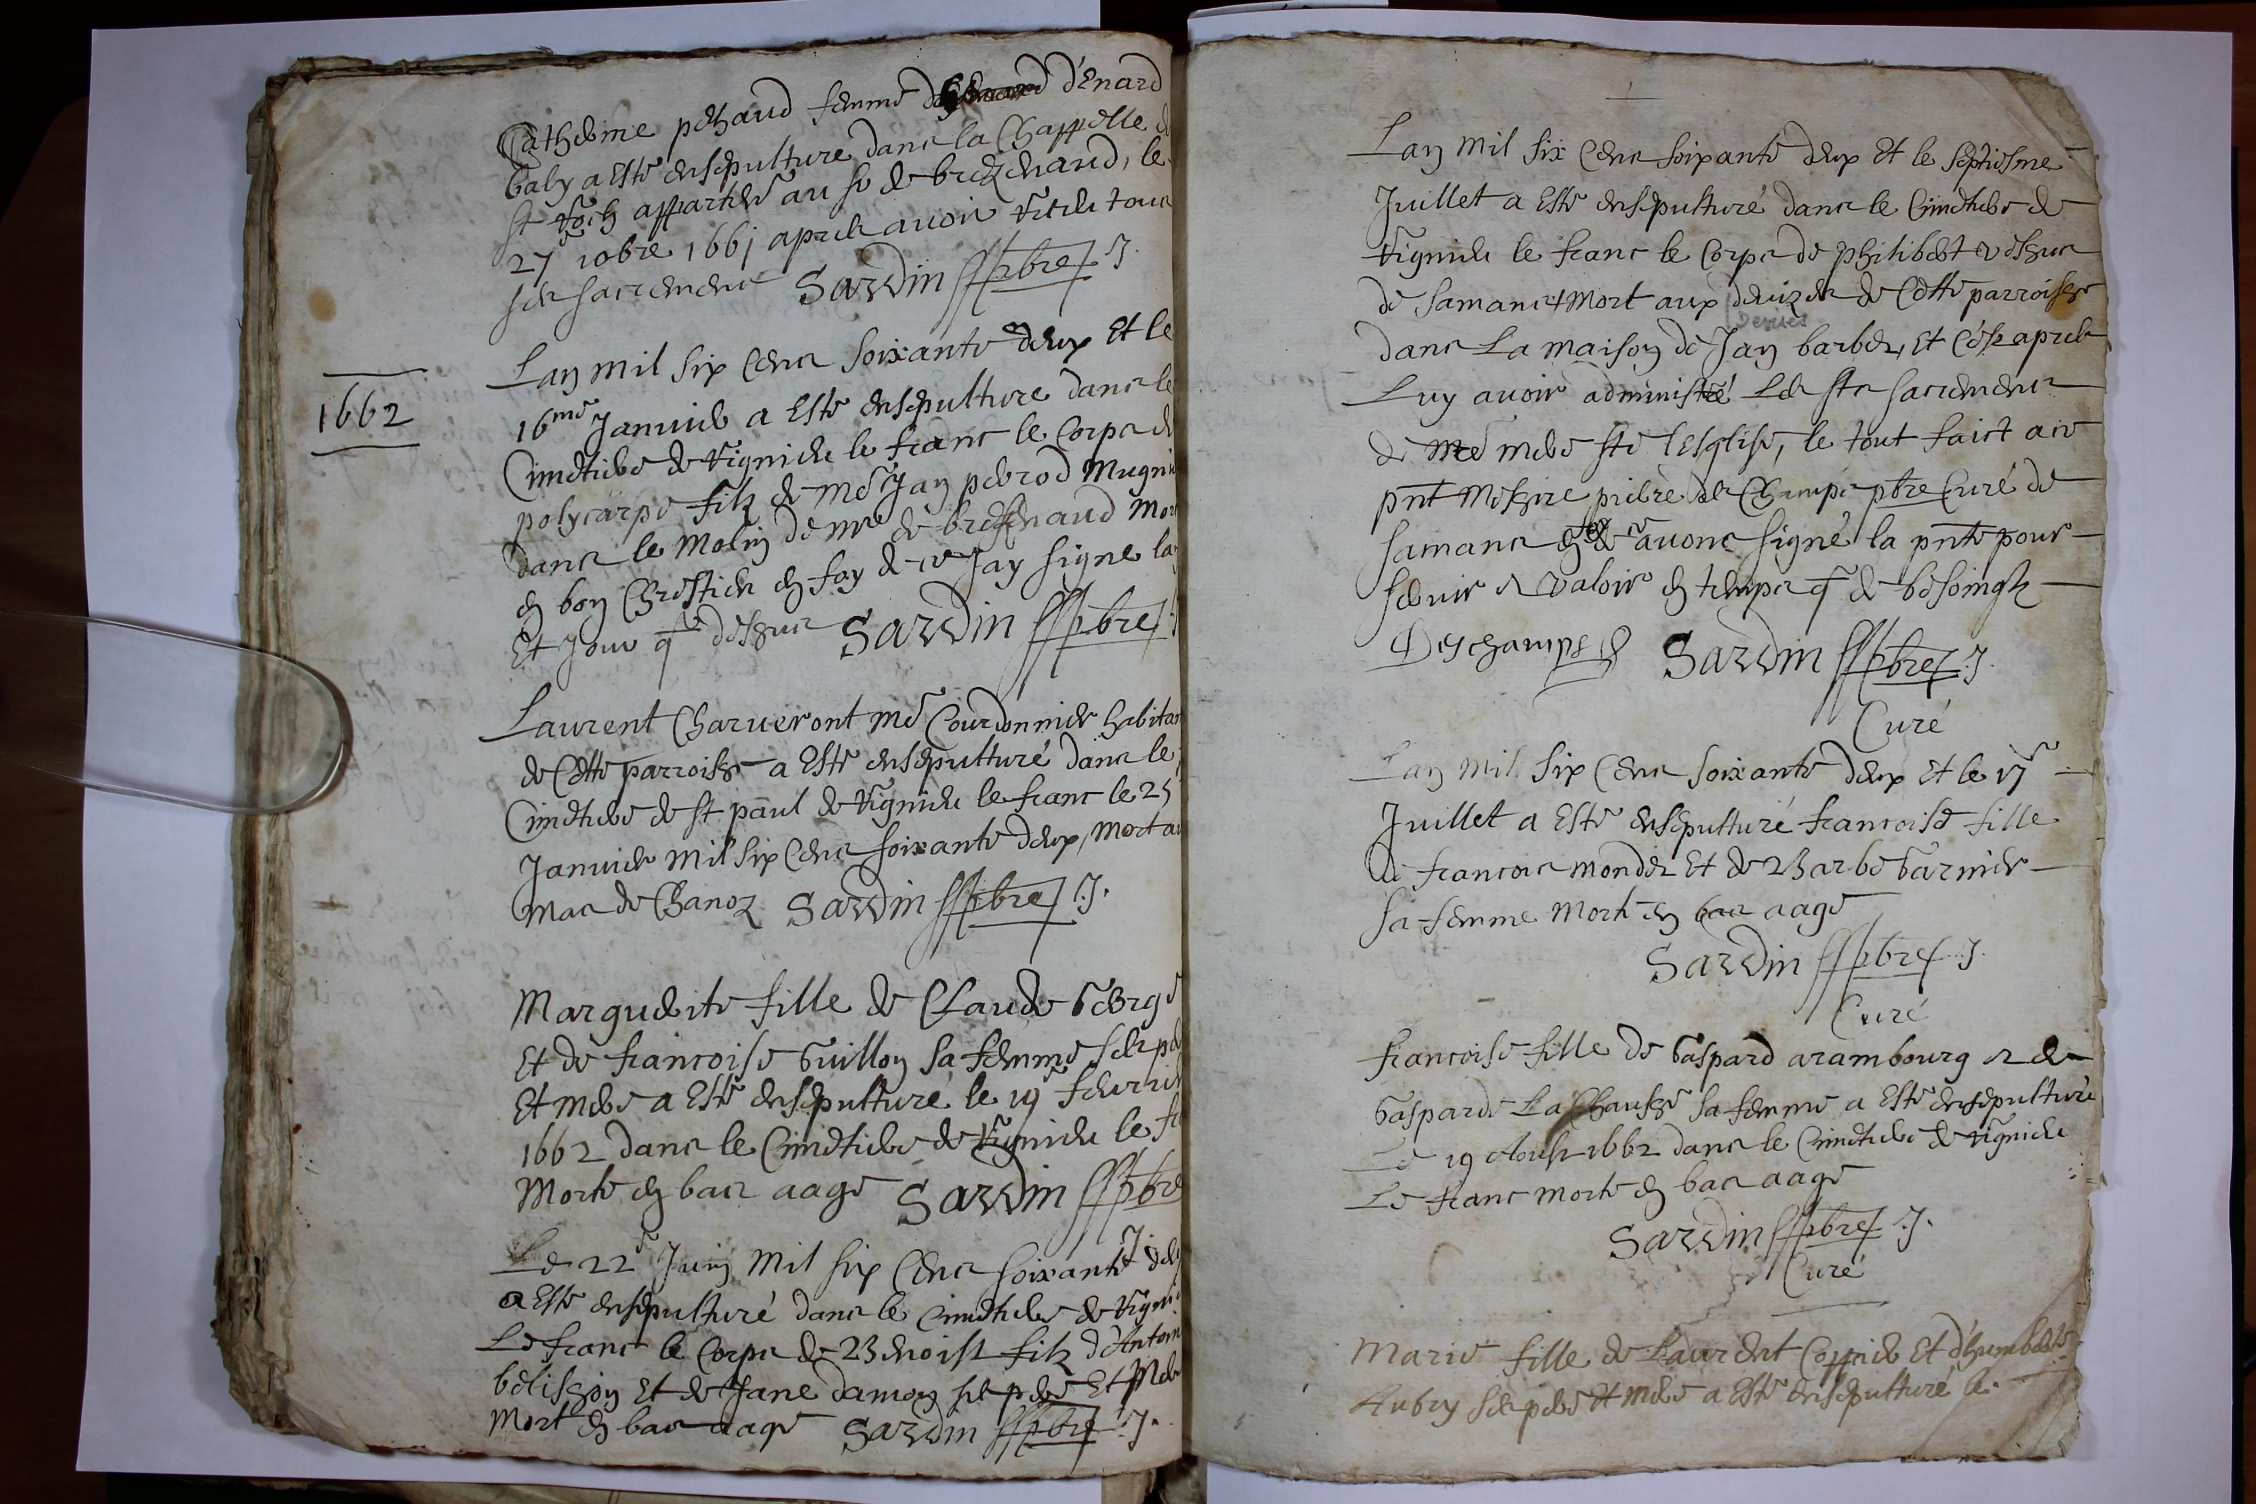 Catherine pehaud femme de d'Enard
baly a Esté ensepulture dans la Chappelle de
st Roch appartenir au sr de brezenaud, le
27e 10bre 1661 apres avoir receu tous
ses sacremens Sardin pbre J.
1662
Lan mil six Cens soixante deux Et le
16me Janvier a Esté ensepulture dans le
Cimetiere de Vignieu le franc le Corps de
polycarpe filz de me Jan perrod Mugnie
dans le Molin de mr de brezenaud Mor
en bon Chrestien en foy de ce Jay signe la
Et Jour q dessus Sardin pbre J
Laurent Charveront me Courdonnier habitan
de Cette parroisse a Esté ensepulturé dans le
Cimetiere de st paul de Vignieu le franc le 25
Janvier mil six Cens soixante deux, mort au
Mas de Chanoz Sardin pbre J.
Marguerite fille de Claude George
Et de francoise Guillon sa femme ses pe
Et mere a Esté ensepulturé le 19e fevrie
1662 dans le Cimetiere de Vignieu le fr
Morte en bas aage Sardin pbre
J.
Le 22e Juin Mil six Cens soixante de
a Este ensepulturé dans le Cimetiere de Vigni
Le franc le Corps de Benoist filz d'Antoin
belisson Et de Jane damon ses pere Et Mere
Mort en bas aage Sardin pbre J.
Lan Mil six Cens soixante deux Et le septiesme
Juillet a Esté ensepulturé dans le Cimetiere de
Vignieu le franc le Corps de philibert
de Samans Mort aux de Cette parroisse
Devises
dans La maison de Jan barbier, Et C'est apres
Luy avoir administré Les sts sacremens
de nre mere ste l'Esglise, le tout faict a ce
pnt Messire pierre des Champs pbre Curé de
Samans avons signé la pnte pour
servir et valoir en temps q de besoingt
Deschamps Sardin pbre J.
Curé
Lan Mil six Cens soixante deux Et le 17e
Juillet a Esté ensepulturé francoise fille
de francois mondez Et de Barbe Garnier
sa femme Morte en bas aage
Sardin pbre J.
Curé
francoise fille de Gaspard arambourg et de
Gasparde La Chausse sa femme a Esté ensepulturé
Le 19 Aoust 1662 dans le Cimetiere de Vignieu
Le franc morte en bas aage
Sardin pbre J.
Curé
Marie fille de Laurent Coppier Et d'humberte
Aubry ses pere Et mere a Esté ensepulturé le